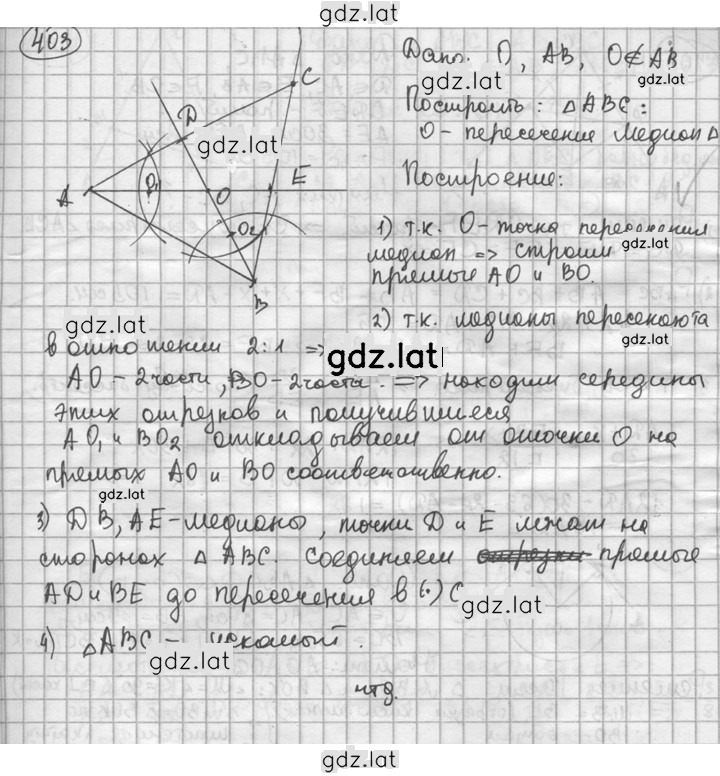 gdz.lat
403
Дано: O, AB, O∉AB
gdz.lat
Построить: △ABC:
O - пересечение медиан △
gdz.lat
C
D
A
O₁
O
E
O₂
B
Построение:
1) т.к. O - точка пересечения
gdz.lat
медиан => строим
прямые AO и BO.
gdz.lat
2) т.к. медианы пересекаются
gdz.lat
в отношении 2:1 =>
gdz.lat
AO - 2 части, BO - 2 части. => находим середины
этих отрезков и получившиеся
AO₁ и BO₂ откладываем от точки O на
gdz.lat
прямых AO и BO соответственно.
gdz.lat
3) DB, AE - медианы, точки D и E лежат на
сторонах △ABC соединяем прямые
AD и BE до пересечения в (·) C
gdz.lat
4) △ABC - искомый.
gdz.lat
чтд.
gdz.lat